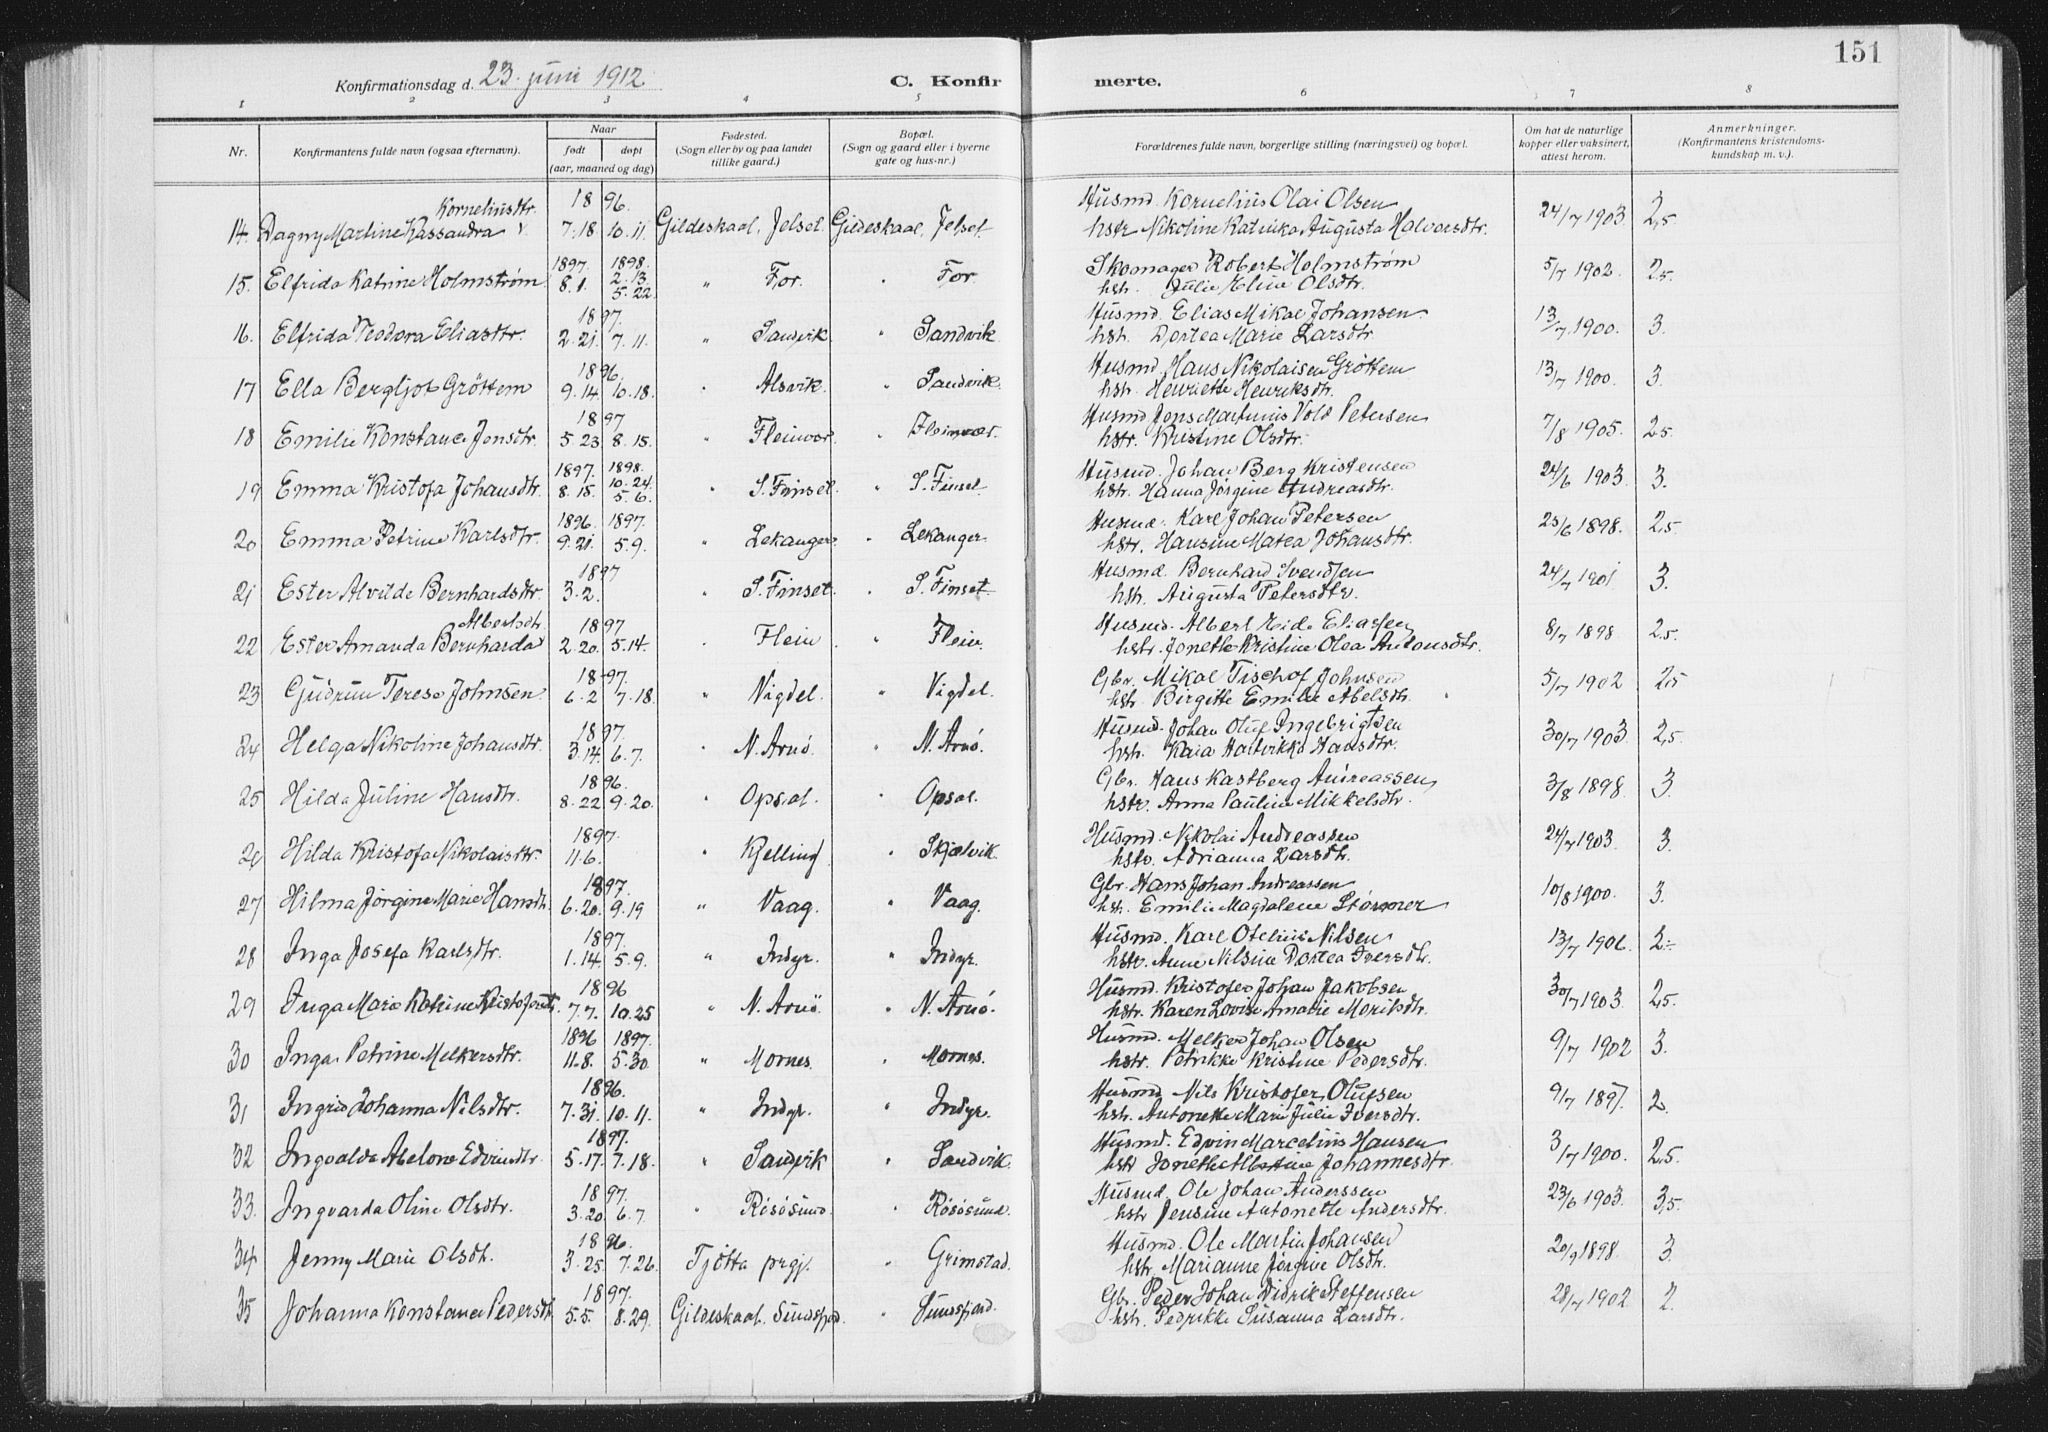 151
Konfirmationsdag d. 23. juni 1912.
C. Konfirmerte.
1 2 3 4 5 6 7 8
Nr. Konfirmantens fulde navn (ogsaa efternavn). Naar født døpt (aar, maaned og dag) Fødested. (Sogn eller by og paa landet tillike gaard.) Bopæl. (Sogn og gaard eller i byerne gate og hus-nr.) Forældrenes fulde navn, borgerlige stilling (næringsvei) og bopæl. Om hat de naturlige kopper eller vaksinert, attest herom. Anmerkninger. (Konfirmantens kristendomskundskap m. v.).
Korneliusdtr. 1896. Husmd. Kornelius Olai Olsen
14. Dagny Martine Kassandra 7.18 10.11. Gildeskaal, Jelset. Gildeskaal, Jelset. hstr Nikoline Katinka Augusta Halvorsdtr. 24/7 1903. 2,5
1897. 1898. Skomager Robert Holmstrøm
15. Elfrida Katrine Holmstrøm 8.1. 2.13. 5.22. " For. " For. hstr. Julie Eline Olsdtr. 5/7 1902. 2,5.
1897. Husmd. Elias Mikal Johansen
16. Elfrida Teodora Eliasdtr. 2.21. 7.11. " Sandvik. " Sandvik. hstr. Dortea Marie Larsdtr. 13/7 1900. 3.
1896. Husmd. Hans Nikolaisen Grøttem
17 Ella Bergljot Grøttem 9.14. 10.18. " Alsvik. " Sandvik. hstr. Henriette Henriksdtr. 13/7 1900. 3.
1897 Husmd. Jens Martinus Vold Petersen
18 Emilie Konstance Jensdtr. 5.23 8.15. " Fleinvær. " Fleinvær. hstr. Kristine Olsdtr. 7/8 1905. 2,5.
1897. 1898. Husmd. Johan Berg Kristensen
19 Emma Kristofa Johansdtr. 8.15. 10.24. 5.6. " S. Finset. " S. Finset. hstr. Hanna Jørgine Andreasdtr. 24/6 1903. 3.
1896. 1897. Husmd. Karl Johan Petersen
20 Emma Petrine Karlsdtr. 9.21. 5.9. " Lekanger. " Lekanger. hstr. Hansine Matea Johansdtr. 25/6 1898. 2,5.
1897 Husmd. Bernhard Svendsen
21 Ester Alvilde Bernhardsdtr. 3.2. " S. Finset. " S. Finset. hstr. Augusta Petersdtr. 24/7 1901 3.
Albertsdtr. 1897 Husmd. Albert Eide Eliassen
22 Ester Amanda Bernharda 2.20. 5.14. " Flein " Flein. hstr. Jonette Kristine Olea Antonsdtr. 8/7 1898 2,5.
1897. Gbr. Mikal Tischof Johnsen
23 Gudrun Terese Johnsen 6.2 7.18. " Nigdel. " Vigdel. hstr. Birgitte Emilie Abelsdtr. 5/7 1902 2,5
1897. Husmd. Johan Oluf Ingebrigtsen
24 Helga Nikoline Johansdtr. 3.14. 6.7. " N. Arnö. " N. Arnö. hstr. Kaia Hartvikka Hansdtr. 30/7 1903. 2,5.
1896. Gbr. Hans Kastberg Andreassen
25 Hilda Juline Hansdtr. 8.22 9.20. " Opsal. " Opsal. hstr. Anna Pauline Mikkelsdtr. 3/8 1898. 3.
1897. Husmd. Nikolai Andreassen
26 Hilda Kristofa Nikolaisdtr. 11.6. " Kjelling " Skjælvik. hstr. Adrianna Larsdtr. 24/7 1903. 3.
1897. Gbr. Hans Johan Andreassen
27 Hilma Jørgine Marie Hansdtr. 6.20. 9.19 " Vaag. " Vaag. hstr. Emilie Magdalene Størmer 10/8 1900. 3.
1897. Husmd. Karl Otelius Nilsen
28 Inga Josefa Karlsdtr. 1.14. 5.9. " Indyr. " Indyr. hstr. Anne Nilsine Dortea Iversdtr. 13/7 1906. 2÷
1896 Husmd. Kristofer Johan Jakobsen
29 Inga Marie Katrine Kristofersdtr. 7.7. 10.25 " N. Arnö. " N. Arnö. hstr. Karen Lovise Amalie Moritsdtr. 30/7 1903. 2,5.
1896 1897. Husmd. Melker Johan Olsen
30 Inga Petrine Melkersdtr. 11.8. 5.30 " Mornes. " Mornes. hstr. Petrikke Kristine Pedersdtr. 9/7 1902 3.
1896. Husmd. Nils Kristofer Olufsen
31 Ingrid Johanna Nilsdtr. 7.31. 10.11. " Indyr. " Indyr. hstr. Antonette Marie Julie Iversdtr. 9/7 1897. 2.
1897. Husmd. Edvin Marcelius Hansen
32 Ingvalda Abelone Edvindtr. 5.17. 7.18. " Sandvik " Sandvik. hstr Jonette Albertine Johannesdtr. 3/7 1900. 2,5.
1897. Husmd. Ole Johan Anderssen
33. Ingvarda Oline Olsdtr. 3.20. 6.7. " Risösund. " Risösund. hstr Jensine Antonette Andersdtr. 23/6 1903. 3,5.
1896. Husmd. Ole Martin Johansen
34 Jenny Marie Olsdtr. 3.25. 7.26. Tjøtta prgj. " Grimstad. hstr. Marianne Jørgine Olsdtr. 20/9 1898. 3.
1897. Gbr. Peder Johan Didrik Steffensen
35 Johanna Konstance Pedersdtr. 5.5. 8.29. Gildeskaal. Sundsfjord. " Sundsfjord. hstr. Pedrikke Susanna Larsdtr. 28/7 1902 2.